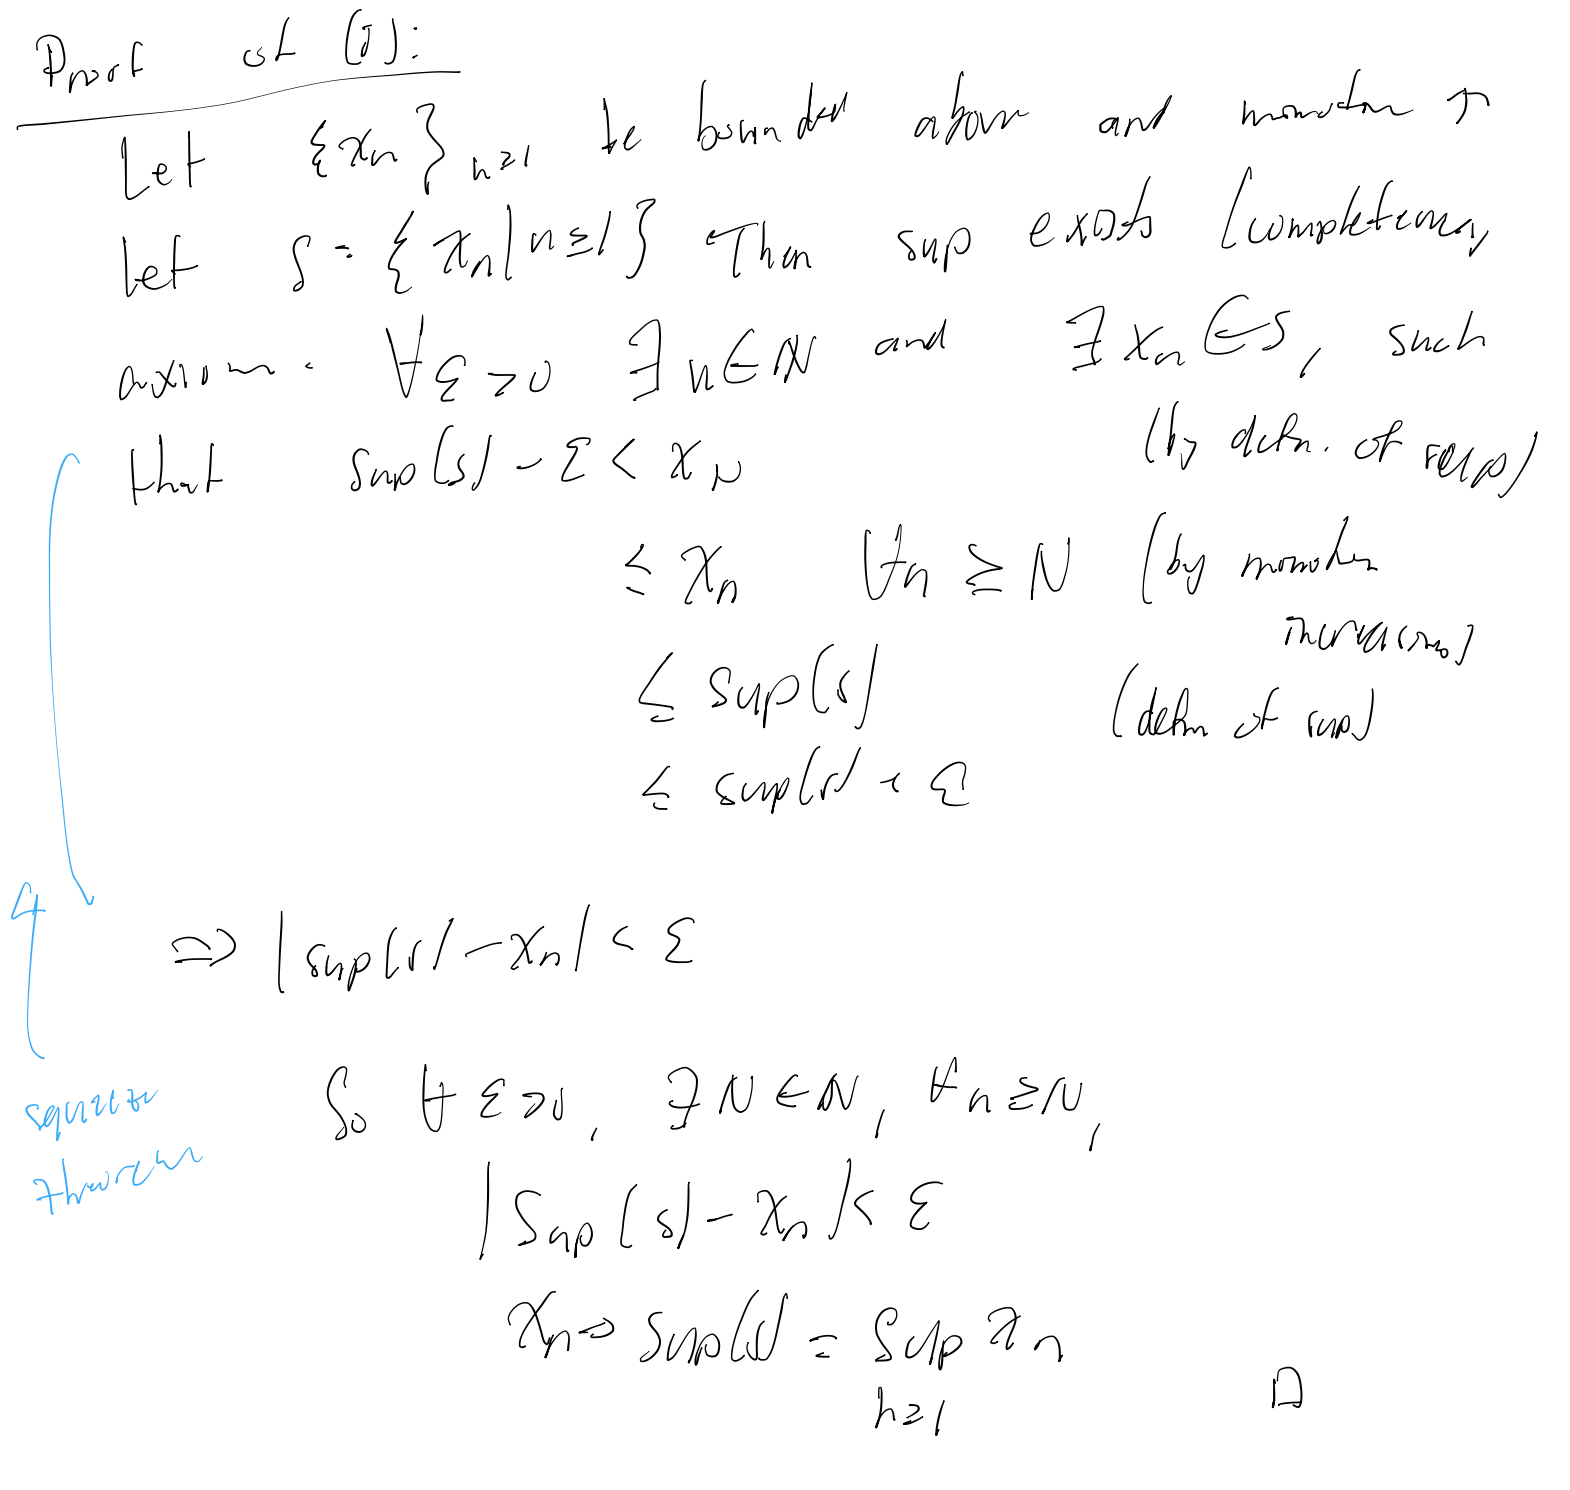 Proof of (i):
Let {xₙ}ₙ≥₁ be bounded above and monoton ↑
Let S = {xₙ | n ≥ 1} Then sup exists (completeness
axiom. ∀ε > 0 ∃n ∈ ℕ and ∃xₙ ∈ S, such
that sup(S) - ε < x_N (by defn. of sup)
≤ xₙ ∀n ≥ N (by monoton
increasing)
≤ sup(S) (defn of sup)
≤ sup(S) + ε
⇒ |sup(S) - xₙ| < ε
So ∀ε > 0, ∃N ∈ ℕ, ∀n ≥ N,
squeeze
theorem
|Sup(S) - xₙ| < ε
xₙ → sup(S) = sup xₙ
n ≥ 1
□